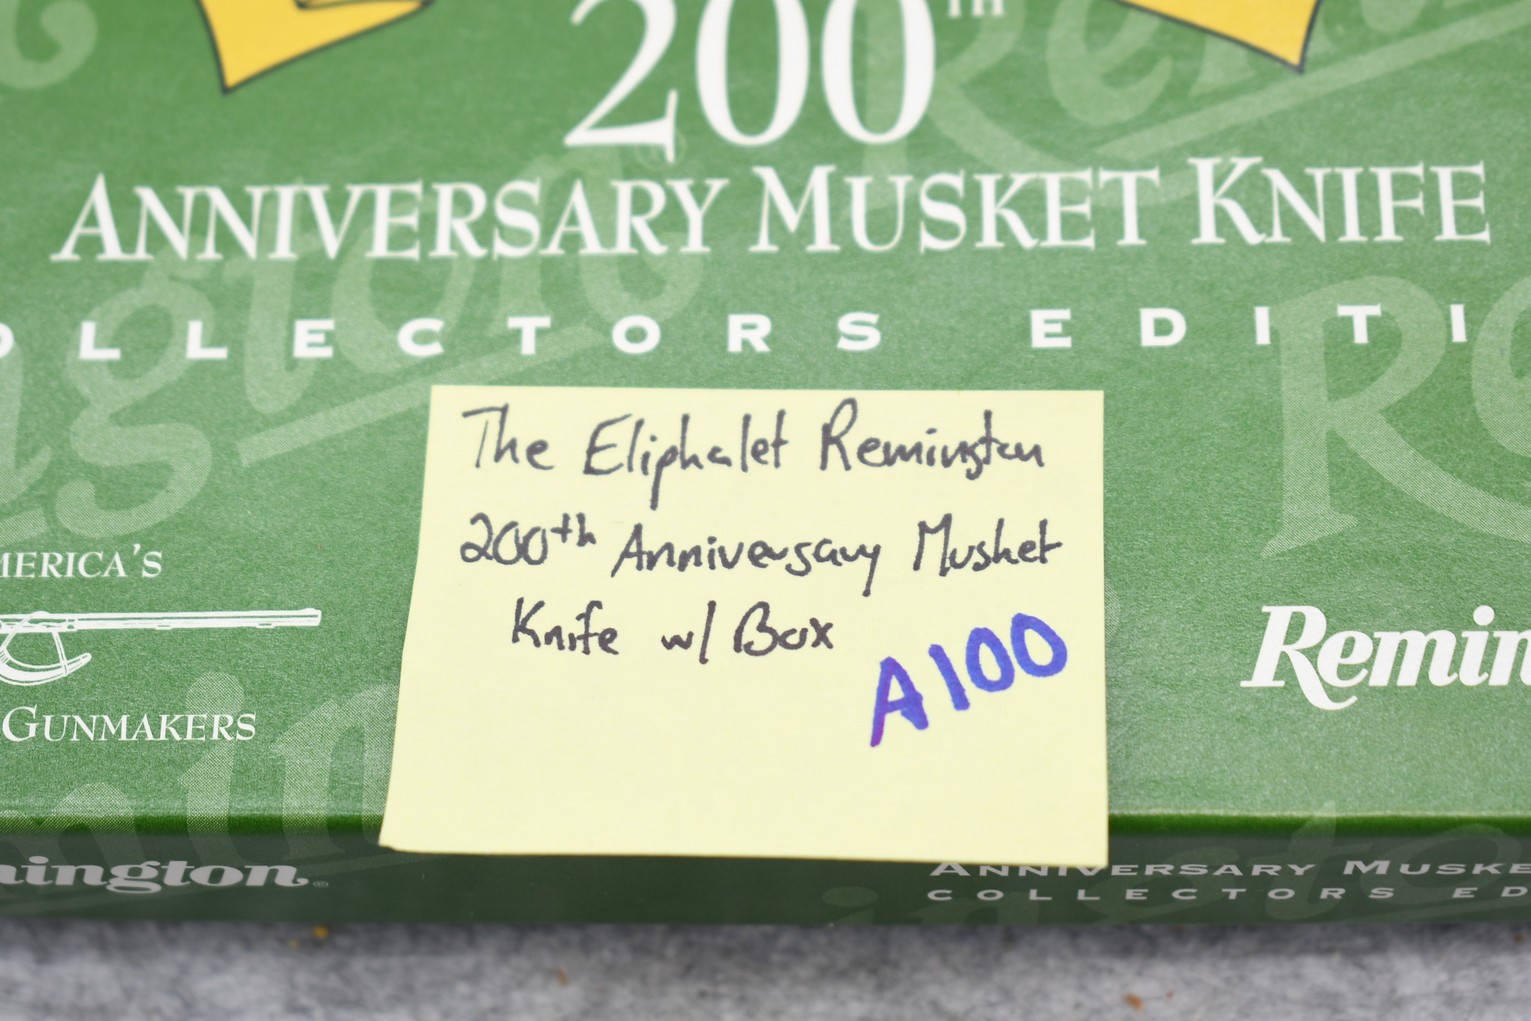 200th
ANNIVERSARY MUSKET KNIFE
OLLECTORS EDITI
The Eliphalet Remington
200th Anniversary Musket
Knife w/ Box
A100
MERICA'S
GUNMAKERS
Remin
mington®
ANNIVERSARY MUSKE
COLLECTORS ED